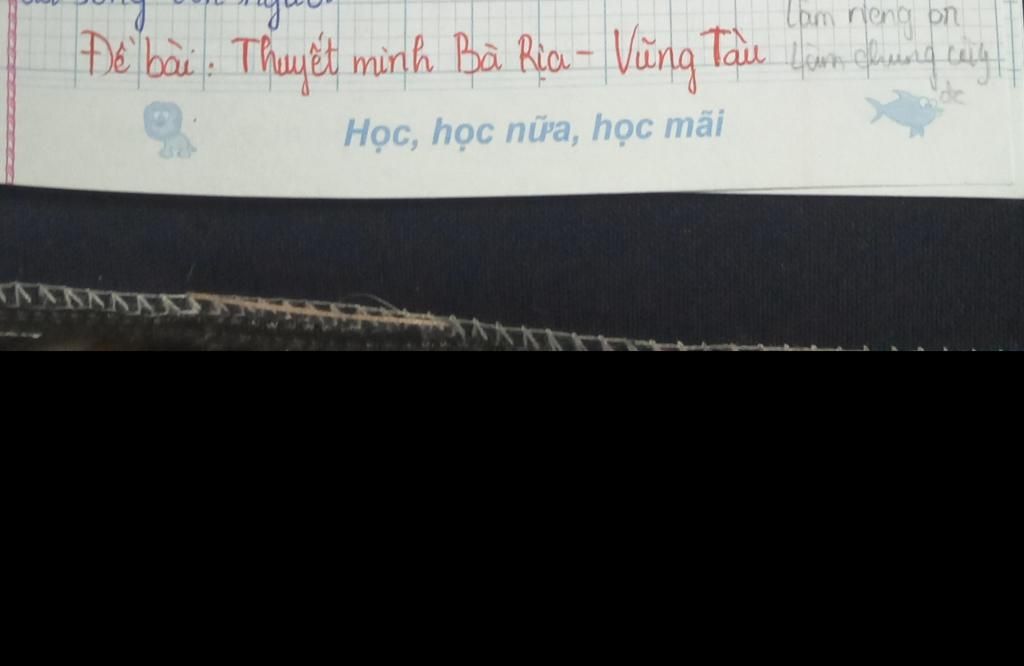 làm riêng ơn
Đề bài: Thuyết minh Bà Rịa - Vũng Tàu
làm chung cũng
đc
Học, học nữa, học mãi